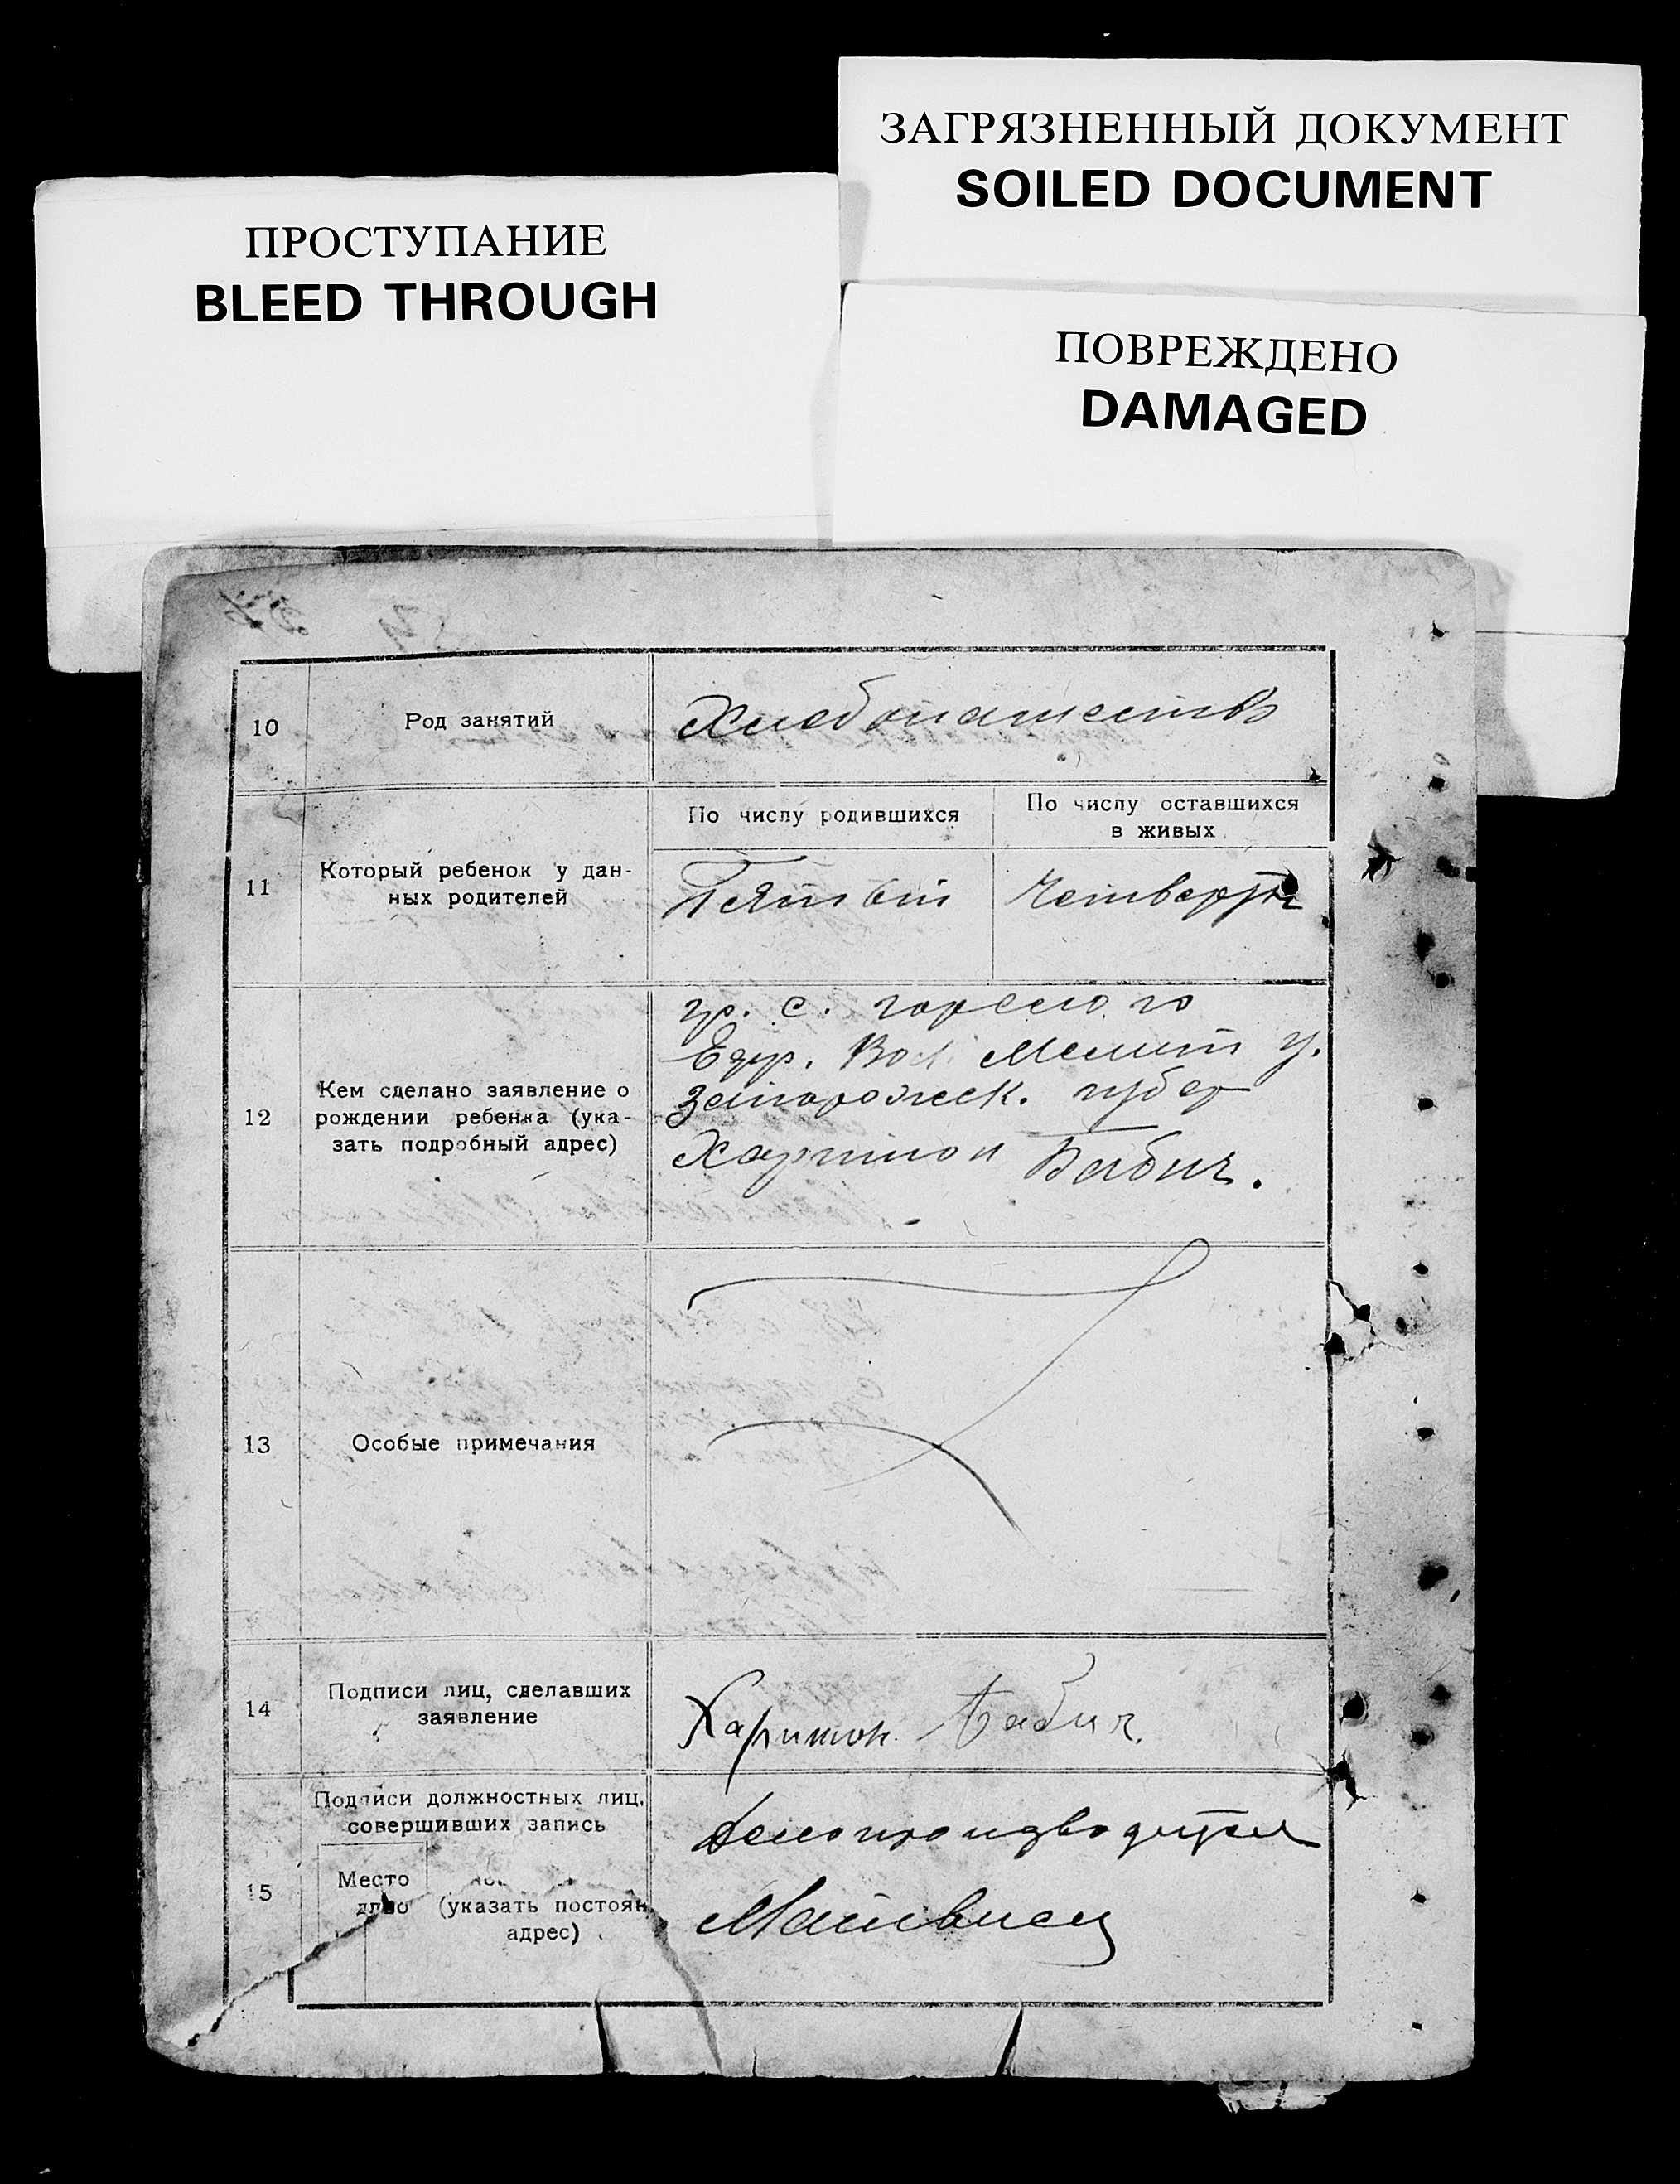 ЗАГРЯЗНЕННЫЙ ДОКУМЕНТ
SOILED DOCUMENT
ПРОСТУПАНИЕ
BLEED THROUGH
ПОВРЕЖДЕНО
DAMAGED
10 Род занятий Хлебопашество
11 Который ребенок у дан-
ных родителей
По числу родившихся
Пятый
По числу оставшихся
в живых
Четверт
12 Кем сделано заявление о
рождении ребенка (ука-
зать подробный адрес)
гр. с. Горелого
Ефр. Вол. Мелит у.
Запорожск. губер
Харитон Бабич.
13 Особые примечания
14 Подписи лиц, сделавших
заявление
Харитон Бабич.
15 Подписи должностных лиц,
совершивших запись
Место
(указать постоян
адрес)
Делопроизводитель